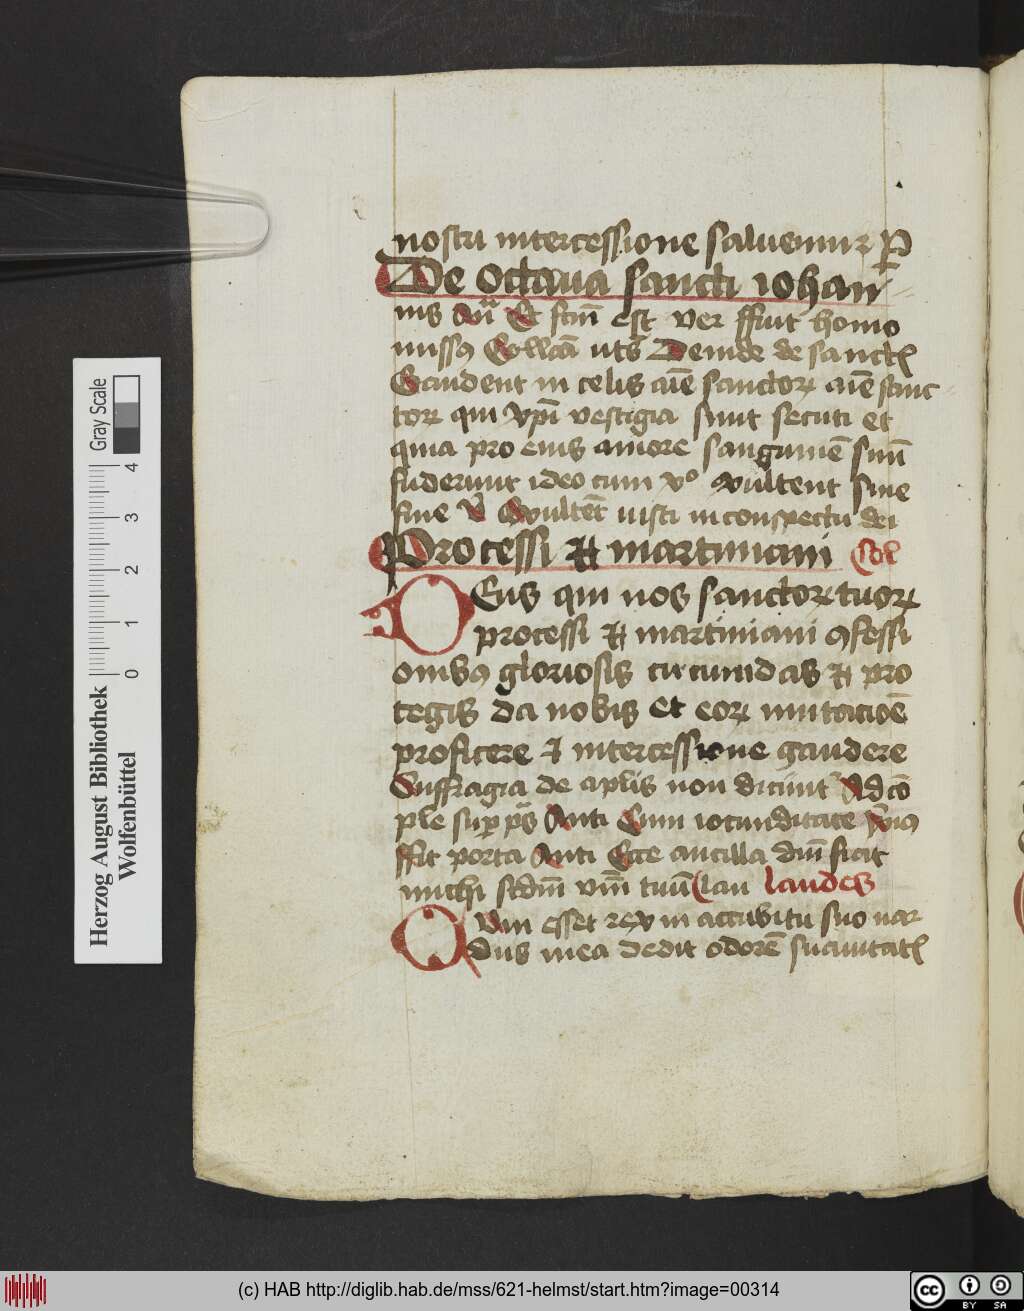 nostri intercessione saluemur P
De Octaua sancti iohan
nis Añ Et scm̄ est ver ffuit homo
missꝯ Collcā uts Deinde de sanctꝭ
Gaudent in celis aīe sanctoꝝ aīe sanc
toꝝ qui xp̄i vestigia sunt secuti et
quia pro eius amore sanguinē suū
fuderunt ideo cum xᵒ exultent sine
fine V Exultēt iusti in conspectu dei
Processi et martiniani Col
DEus qui nos sanctoꝝ tuoꝝ
processi et martiniani ꝯfessi
onibꝯ gloriosis circumdas et pro
tegis da nobis et eoꝝ imitacioē
proficere et intercessione gaudere
Suffragia de aplis non dicunt Ad cō
ple suꝑ ps Anti Cum iocunditate
ffit porta Anti Ecce ancilla dn̄i ficit
michi scdm̄ vm̄ tuū Clau laudes
DVm esset rex in accubitu suo nar
dus mea dedit odorē suauitatꝭ
Herzog August Bibliothek
Wolfenbüttel
0 1 2 3 4
Gray Scale
(c) HAB http://diglib.hab.de/mss/621-helmst/start.htm?image=00314
cc BY SA